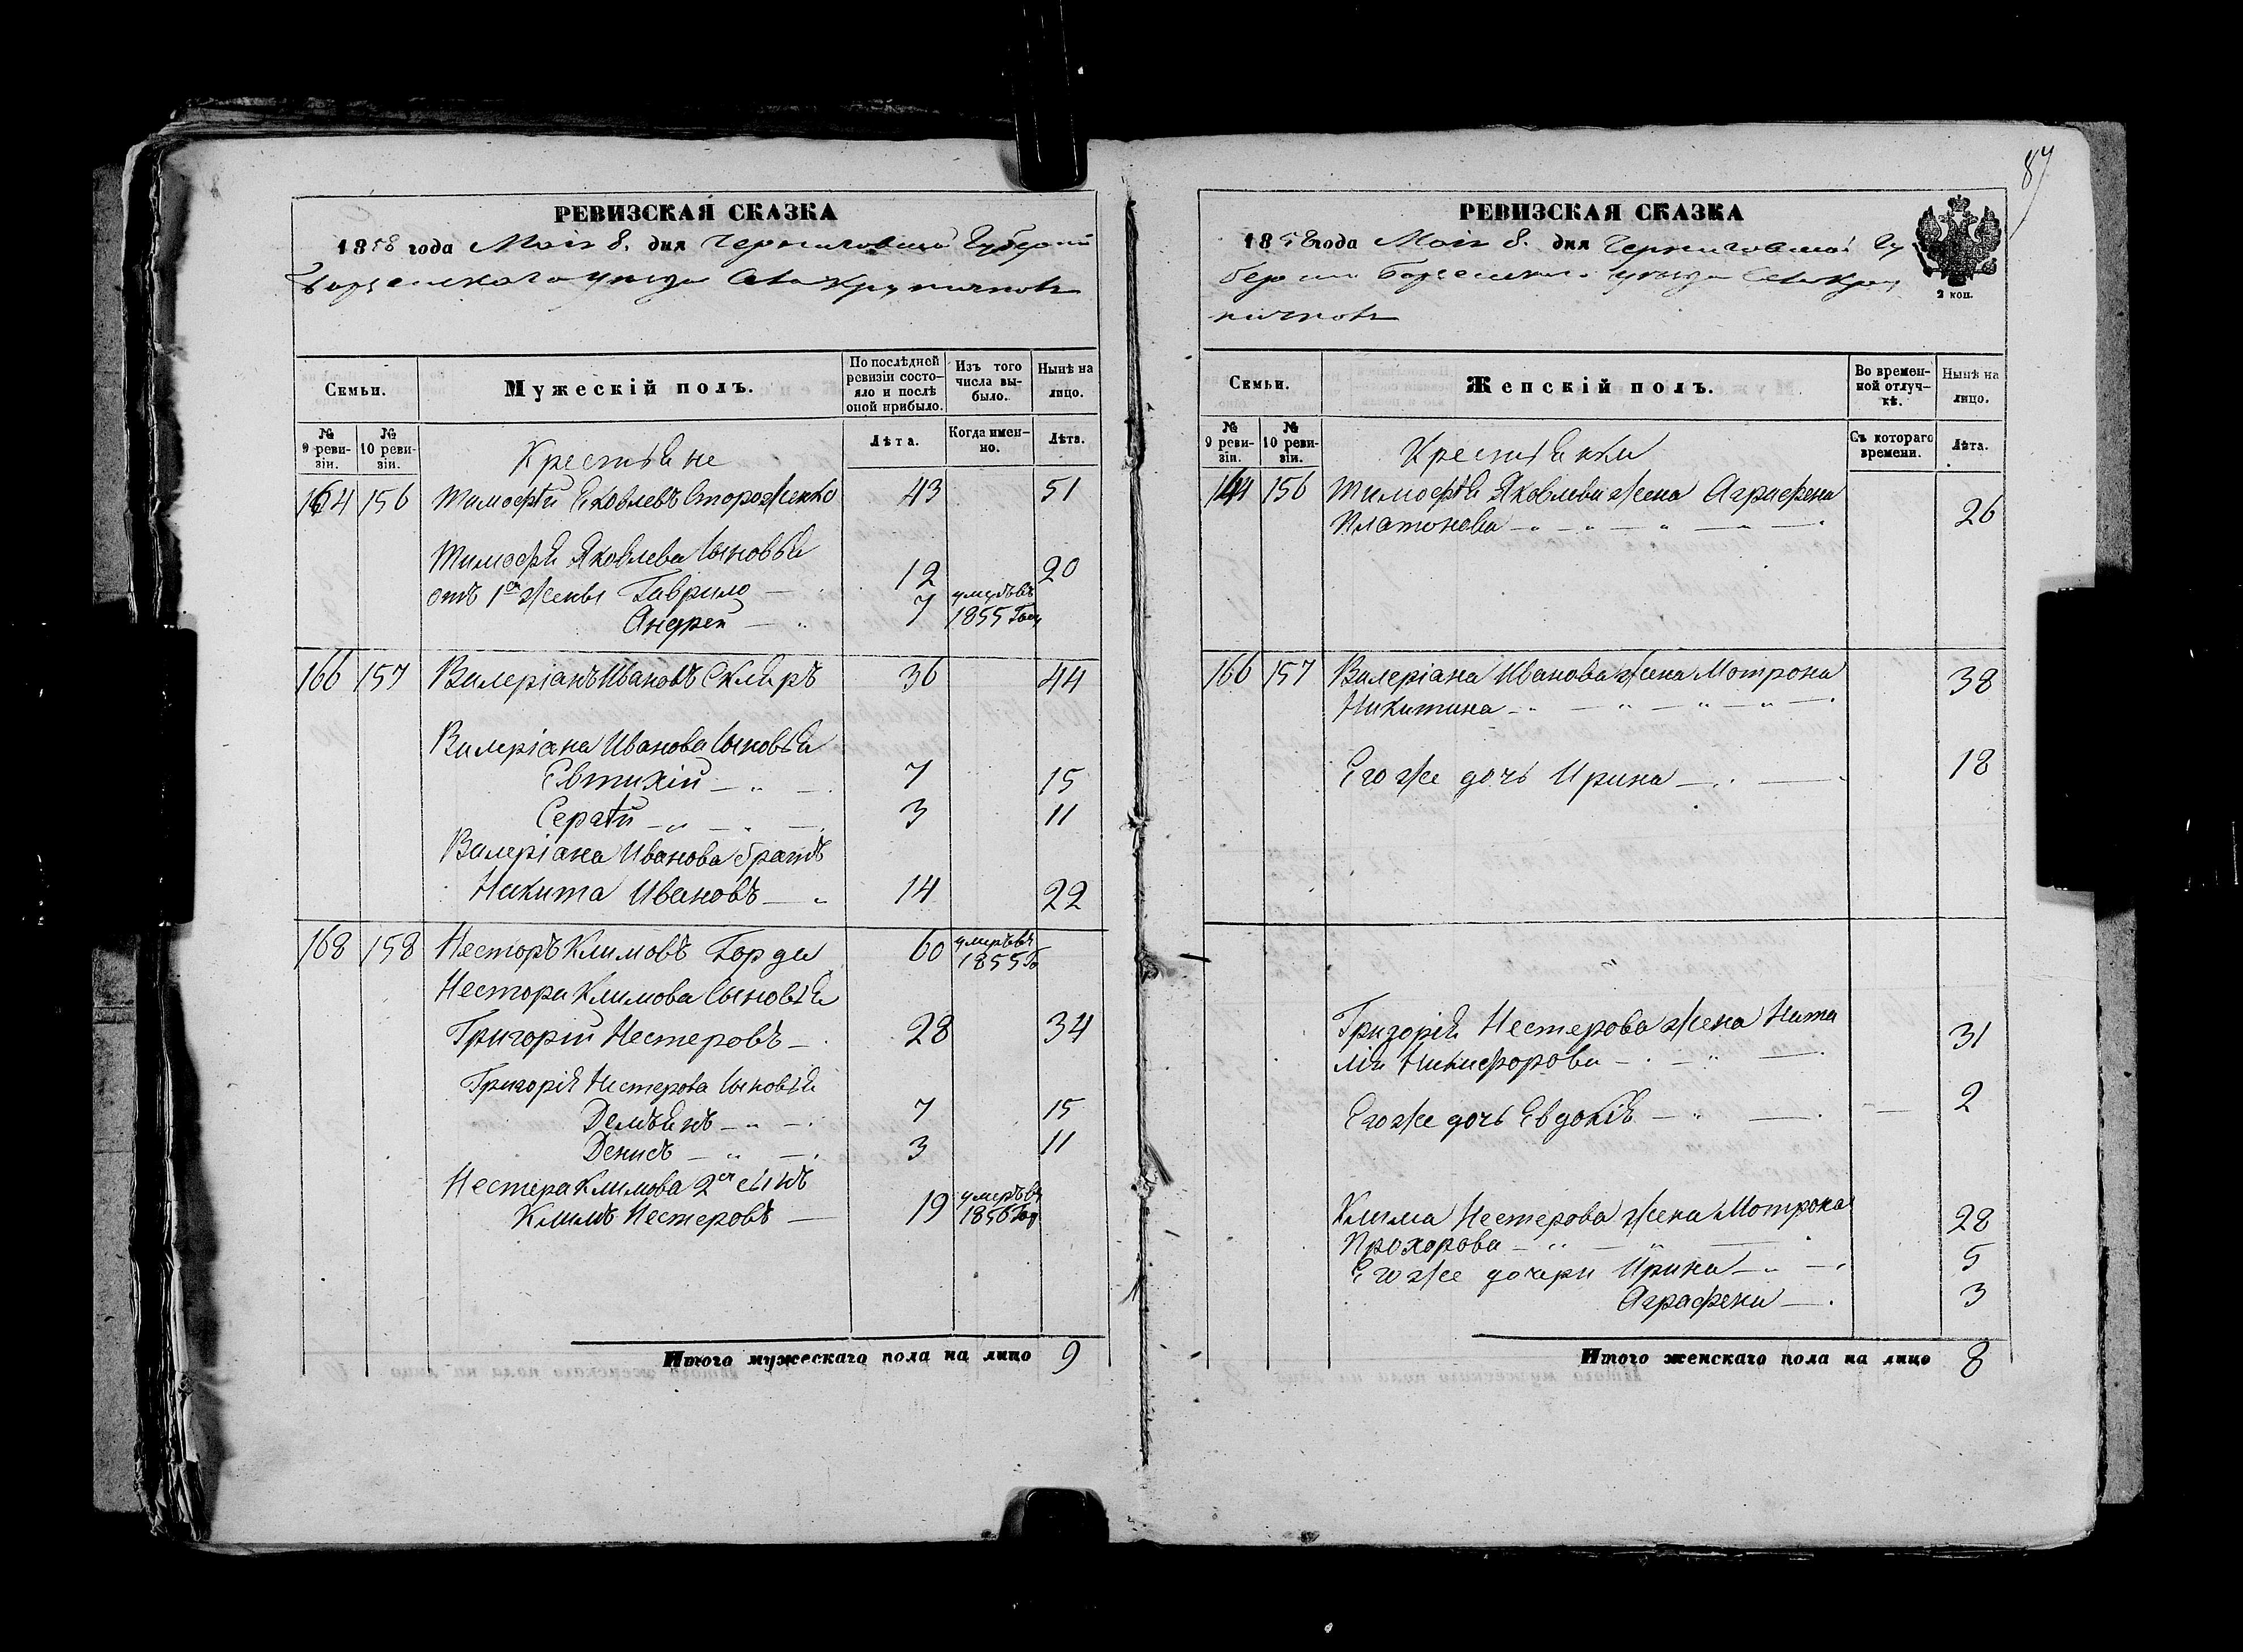 РЕВИЗСКАЯ СКАЗКА
1858 года Маія 8. дня Черниговской Губерніи
Борзенскаго уѣзда
Семьи.
Мужескій полъ.
По послѣдней ревизіи состо-
яло и послѣ оной прибыло.
Изъ того числа вы-
было.
Нынѣ на лицо.
№ 9 реви-
зіи.
№ 10 реви-
зіи.
Лѣта.
Когда имен-
но.
Лѣта.
Крестьяне
164 156 Тимофѣй Яковлевъ Стороженко 43 51
Тимофѣя Яковлева сыновья
отъ 1й жены Гаврило 12 20
Андрей 7 умеръ въ 1855 Году
166 157 Валеріанъ Ивановъ Скляръ 36 44
Валеріана Иванова сыновья
Евтихій 7 15
Сергѣй 3 11
Валеріана Иванова братъ
Никита Ивановъ 14 22
168 158 Несторъ Климовъ 60 умеръ въ 1855 Го
Нестора Климова сыновья
Григорій Нестеровъ 28 34
Григорія Нестерова сыновья
Демьянъ 7 15
Денисъ 3 11
Нестера Климова 2й сынъ
Климъ Нестеровъ 19 умеръ въ 1856 Году
Итого мужескаго пола на лицо 9
87
РЕВИЗСКАЯ СКАЗКА
1858 года Маія 8. дня Черниговской Гу
берніи Борзенскаго уѣзда
2 коп.
Семьи.
Женскій полъ.
Во времен-
ной отлуч-
кѣ.
Нынѣ на лицо.
№ 9 реви-
зіи.
№ 10 реви-
зіи.
Съ котораго времени.
Лѣта.
Крестьянки
156 Тимофѣя Яковлева жена Аграфена
Платонова 26
166 157 Валеріана Иванова жена Мотрона
Никитина 38
Его же дочь Ирина 18
Григорія Нестерова жена Ната
лія Никифорова 31
Его же дочь Евдокія 2
Клима Нестерова жена Мотрона
Прохорова 28
Его же дочери Ирина 5
Аграфена 3
Итого женскаго пола на лицо 8